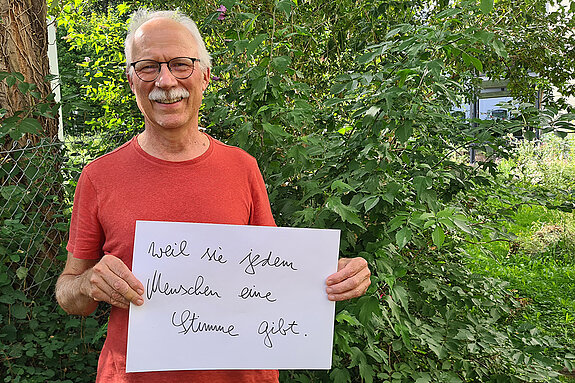 weil sie jedem
Menschen eine
Stimme gibt.